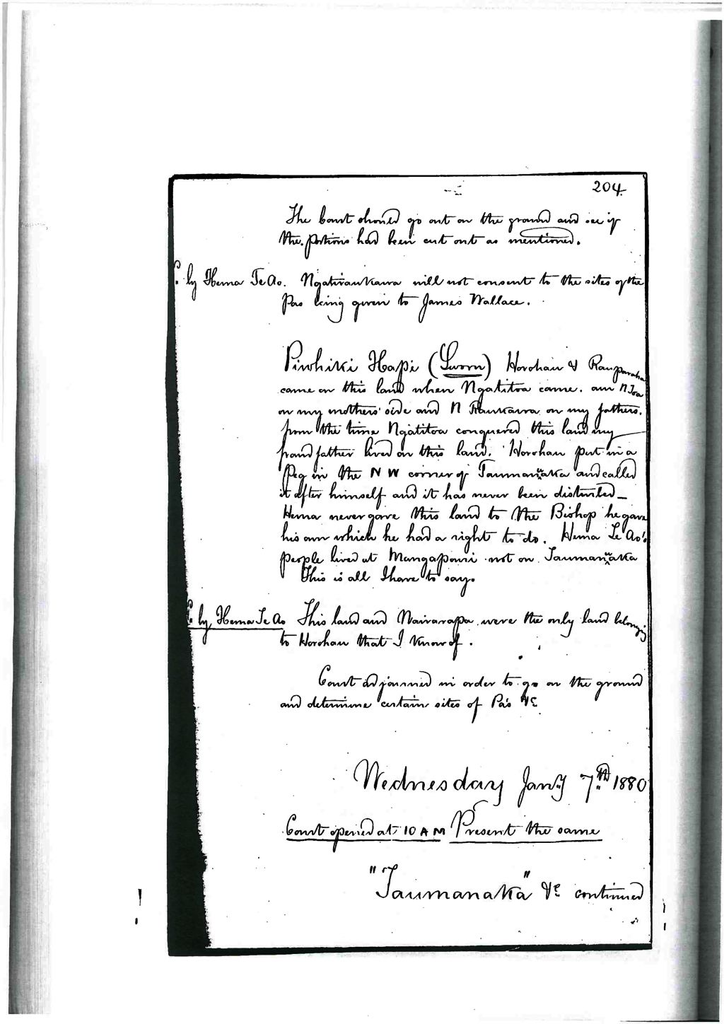 204
The Court should go out on the ground and see if
the portions had been cut out as mentioned.
by Hema Te Ao. Ngatiraukawa will not consent to the sites of the
Pas being given to James Wallace.
Piwhiki Hapi (Sworn) Horohau & Rauparaha
came on this land when Ngatitoa came. am N. Toa
on my mothers side and N Raukawa on my fathers.
from the time Ngatitoa conquered this land my
grandfather lived on this land. Horohau put in a
Peg in the NW corner of Taumanuka and called
it after himself and it has never been disturbed —
Hema never gave this land to the Bishop he gave
his own which he had a right to do. Hema Te Ao's
people lived at Mangapouri not on Taumanuka
This is all I have to say.
by Hema Te Ao This land and Wairarapa were the only land belonging
to Horohau that I know of.
Court adjourned in order to go on the ground
and determine certain sites of Pa's &c
Wednesday Jany 7th 1880
Court opened at 10 AM Present the same
"Taumanaka" &c continued